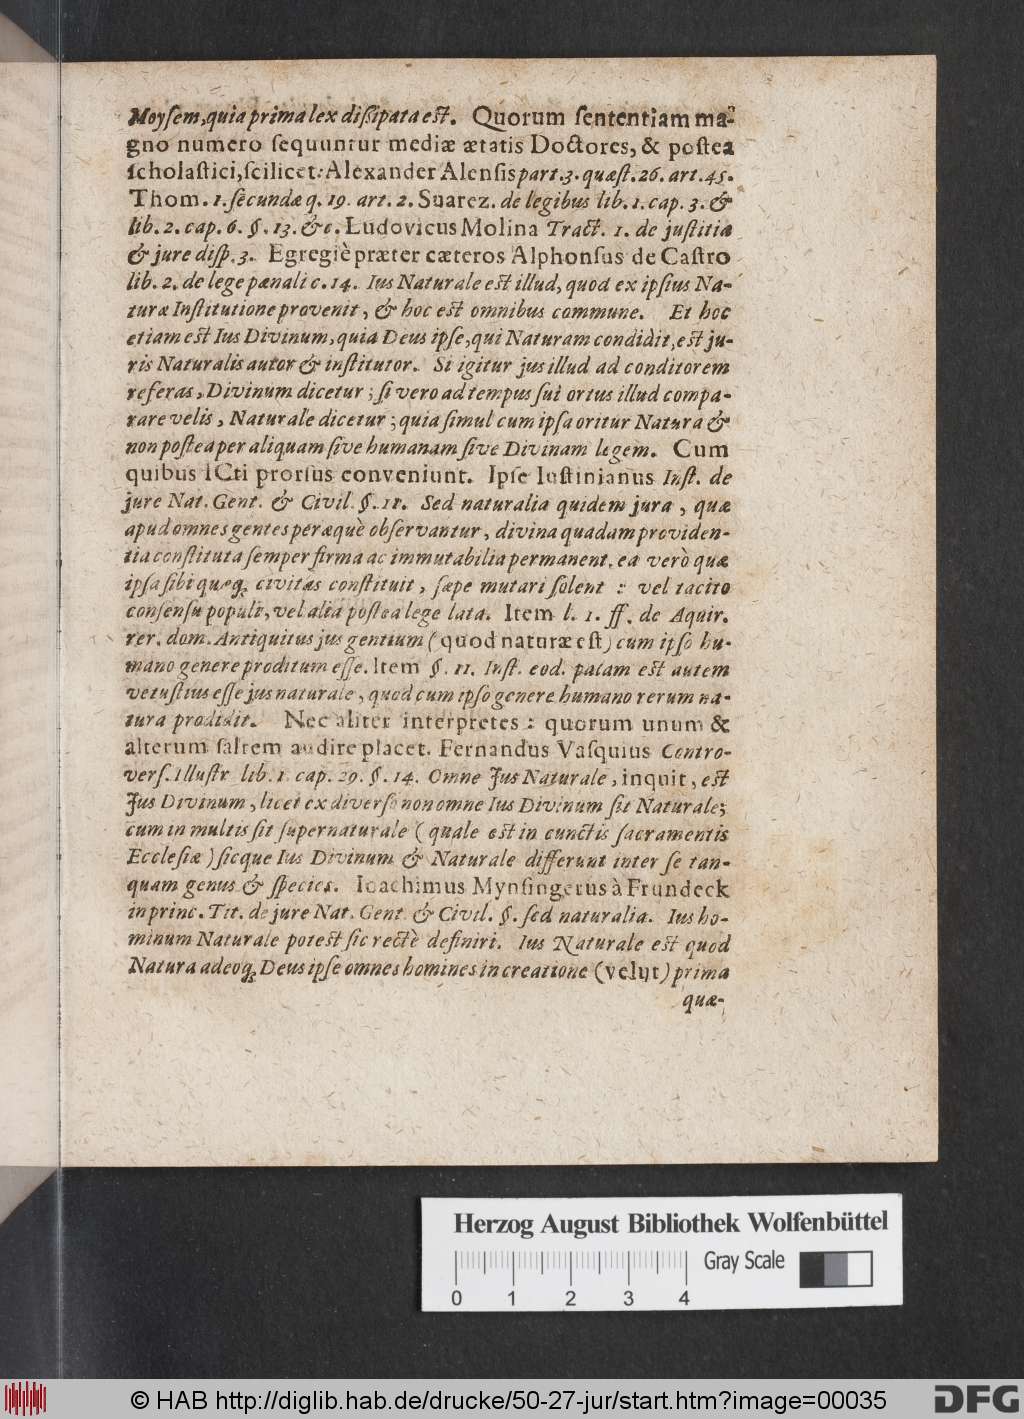 Moysem, quia prima lex dißipata est. Quorum sententiam ma-
gno numero sequuntur mediæ ætatis Doctores, & postea
scholastici, scilicet: Alexander Alensis part. 3. quæst. 26. art. 45.
Thom. 1. secundæ q. 19. art. 2. Suarez. de legibus lib. 1. cap. 3. &
lib. 2. cap. 6. §. 13. &c. Ludovicus Molina Tract. 1. de justitia
& jure disp. 3. Egregiè præter cæteros Alphonsus de Castro
lib. 2. de lege pœnali c. 14. Ius Naturale est illud, quod ex ipsius Na-
turæ Institutione provenit, & hoc est omnibus commune. Et hoc
etiam est Ius Divinum, quia Deus ipse, qui Naturam condidit, est ju-
ris Naturalis autor & institutor. Si igitur jus illud ad conditorem
referas, Divinum dicetur; si vero ad tempus sui ortus illud compa-
rare velis, Naturale dicetur; quia simul cum ipsa oritur Natura &
non postea per aliquam sive humanam sive Divinam legem. Cum
quibus ICti prorsus conveniunt. Ipse Iustinianus Inst. de
jure Nat. Gent. & Civil. §. 11. Sed naturalia quidem jura, quæ
apud omnes gentes peræquè observantur, divina quadam providen-
tia constituta semper firma ac immutabilia permanent. ea verò quæ
ipsa sibi quæq; civitas constituit, sæpe mutari solent : vel tacito
consensu populi, vel alia postea lege lata. Item l. 1. ff. de Aquir.
rer. dom. Antiquitus jus gentium (quod naturæ est) cum ipso hu-
mano genere proditum esse. Item §. 11. Inst. eod. palam est autem
vetustius esse jus naturale, quod cum ipso genere humano rerum na-
tura prodidit. Nec aliter interpretes: quorum unum &
alterum saltem audire placet. Fernandus Vasquius Contro-
vers. Illustr lib. 1. cap. 29. §. 14. Omne Jus Naturale, inquit, est
Jus Divinum, licet ex diverso non omne Ius Divinum sit Naturale;
cum in multis sit supernaturale (quale est in cunctis sacramentis
Ecclesiæ) sicque Ius Divinum & Naturale differunt inter se tan-
quam genus & species. Ioachimus Mynsingerus à Frundeck
in princ. Tit. de jure Nat. Gent. & Civil. §. sed naturalia. Ius ho-
minum Naturale potest sic rectè definiri. Ius Naturale est quod
Natura adeoq; Deus ipse omnes homines in creatione (velut) prima
quæ-
Herzog August Bibliothek Wolfenbüttel
Gray Scale
0 1 2 3 4
© HAB http://diglib.hab.de/drucke/50-27-jur/start.htm?image=00035
DFG